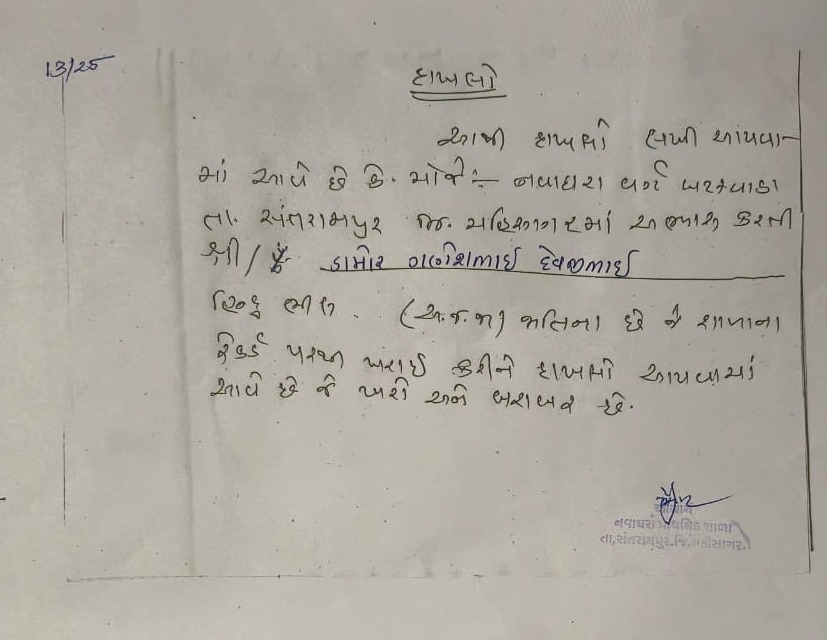 13/25
દાખલો
આથી દાખલો લખી આપવા-
માં આવે છે કે. મોજે :- નવાઘરા વર્ગ બરસ્વાડા
તા. સંતરામપુર જિ. મહિસાગરમાં અભ્યાસ કરતી
શ્રી / કુ. ડામોર ગણેશભાઇ દેવજીભાઇ
હિન્દુ ભીલ. (અ.જ.જા) જાતિના છે જે શાળાના
રેકર્ડ પરથી ખરાઇ કરીને દાખલો આપવામાં
આવે છે જે ખરો અને બરાબર છે.
આચાર્ય
નવાઘરાં પ્રાથમિક શાળા
તા,સંતરામપુર.જિ.મહીસાગર.